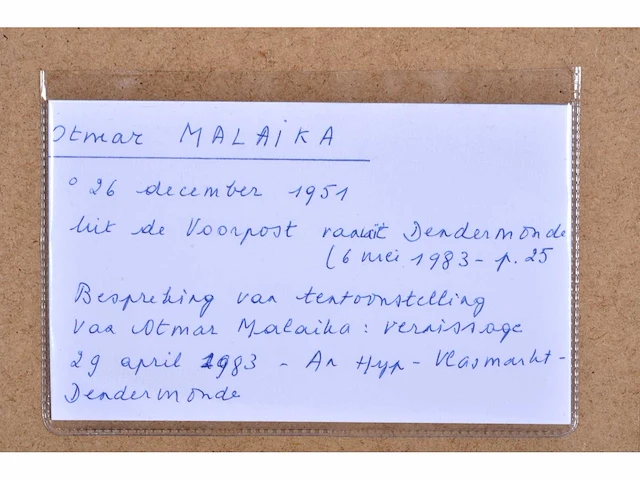 Otmar MALAIKA
° 26 december 1951
Uit de Voorpost vanuit Dendermonde
(6 mei 1983 - p. 25
Bespreking van tentoonstelling
van Otmar Malaika : vernissage
29 april 1983 - An Hyp - Vlasmarkt -
Dendermonde